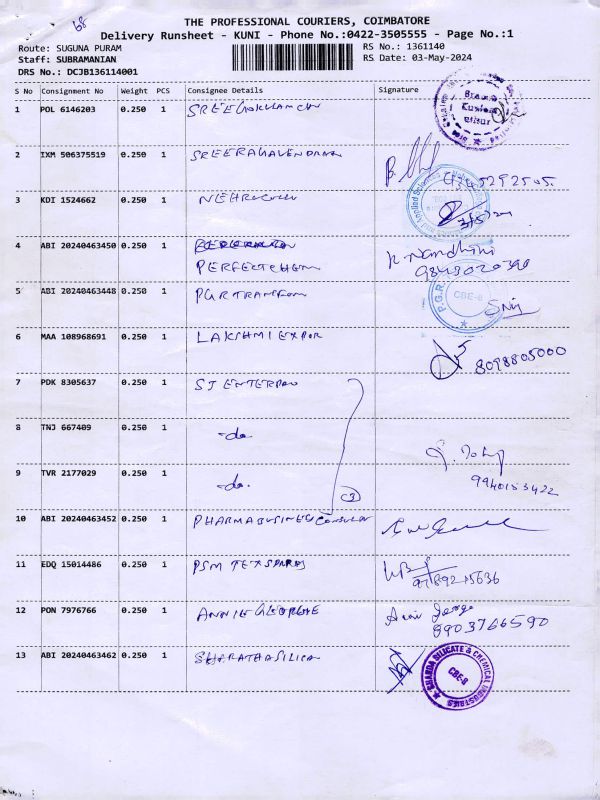 68
THE PROFESSIONAL COURIERS, COIMBATORE
Delivery Runsheet - KUNI - Phone No.:0422-3505555 - Page No.:1
Route: SUGUNA PURAM
RS No.: 1361140
Staff: SUBRAMANIAN
RS Date: 03-May-2024
DRS No.: DCJB136114001
S No Consignment No Weight PCS Consignee Details Signature
1 POL 6146203 0.250 1 SREEGOKULAMCH
2 IXM 506375519 0.250 1 SREERAGAVENDRAN
3 KDI 1524662 0.250 1 NEHRUCOLL
4 ABI 20240463450 0.250 1
PERFECTCHEM K Nandhini
9843020390
5 ABI 20240463448 0.250 1 PGRTRANSFOM
P.G.R. CBE-8
6 MAA 108968691 0.250 1 LAKSHMI EXPOR
8098805000
7 PDK 8305637 0.250 1 SJ ENTERPRI
8 TNJ 667409 0.250 1 -do-
9 TVR 2177029 0.250 1 -do- (3)
9940153422
10 ABI 20240463452 0.250 1 PHARMABUSINES CONSULN
11 EDQ 15014486 0.250 1 PSM TEXSPARES
12 PON 7976766 0.250 1 ANNIE GEORGE
8903766590
13 ABI 20240463462 0.250 1 SHARATHASILICA
SHARDA SILICATE & CHEMICAL INDUSTRIES
CBE-8